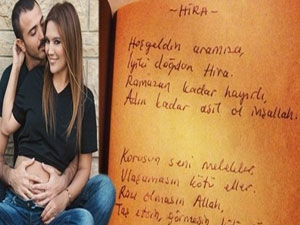 -HİRA-
Hoşgeldin aramıza,
İyiki doğdun Hira.
Ramazan kadar hayırlı,
Adın kadar asil ol inşallah.
Korusun seni melekler,
Ulaşamasın kötü eller.
Razı olmasın Allah,
Taş etsin, görmesin